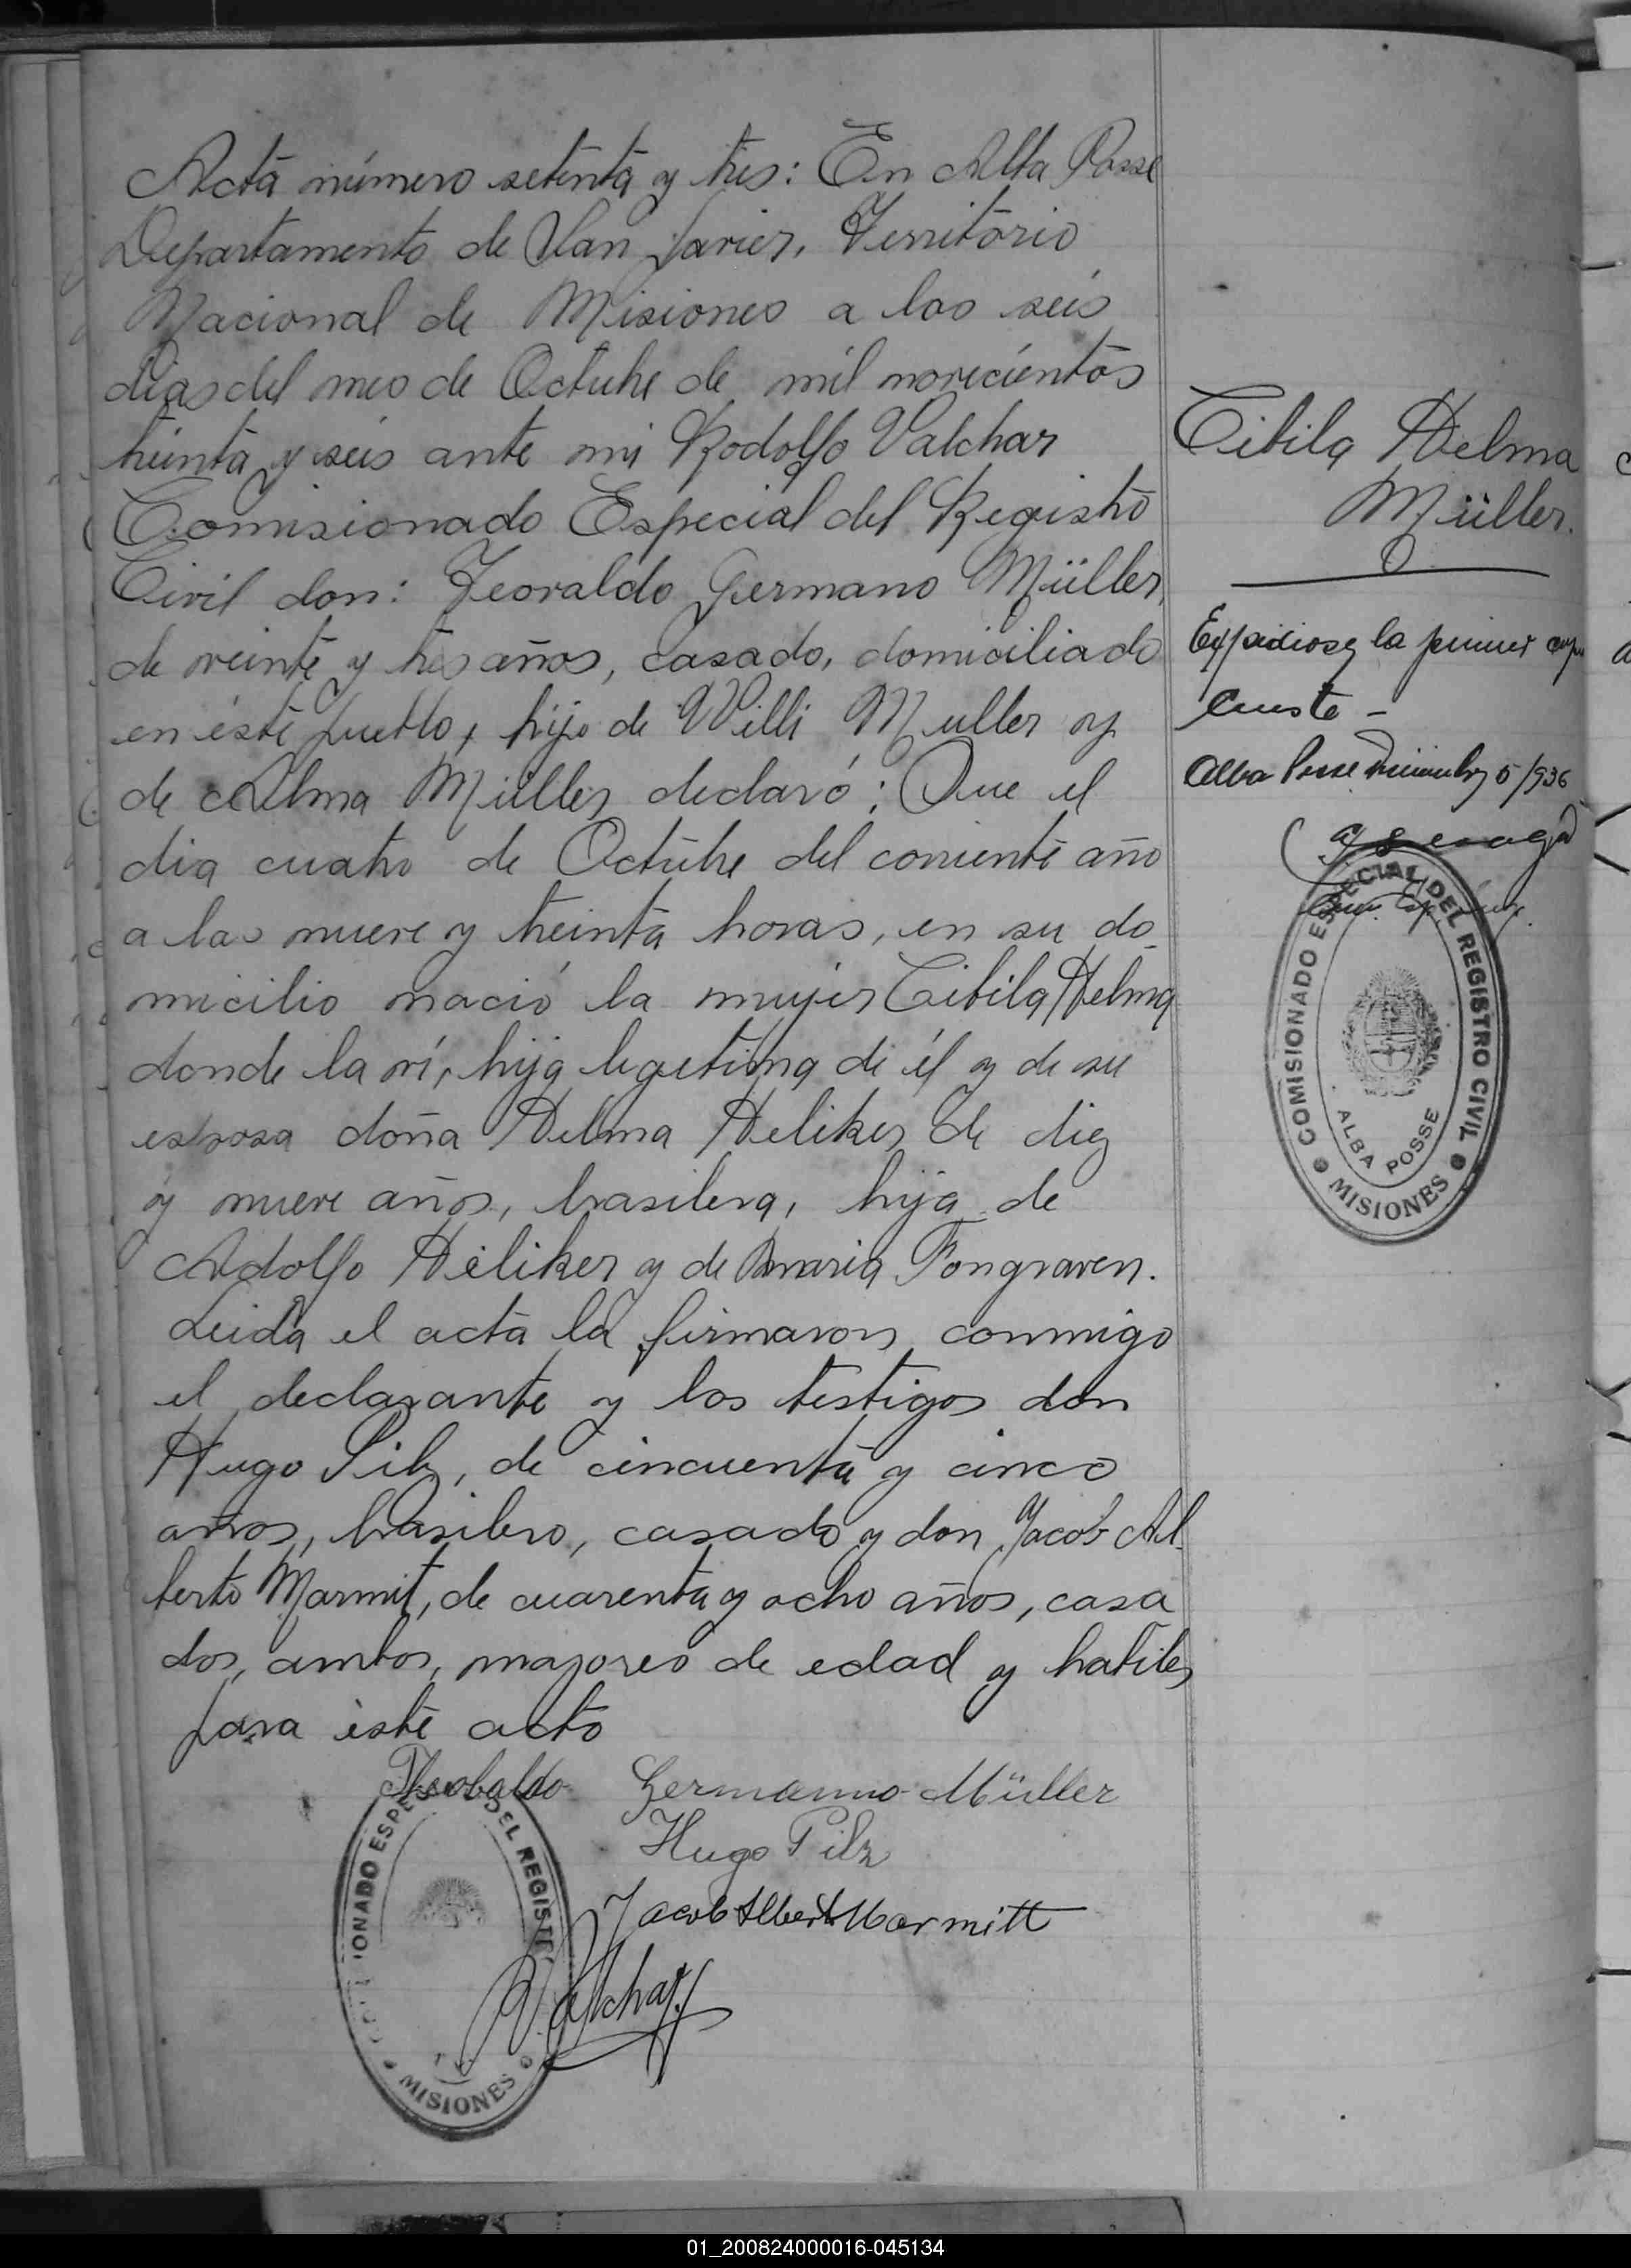 Acta número setenta y tres: En Alba Posse
Departamento de San Javier, Territorio
Nacional de Misiones a los seis
dias del mes de Octubre de mil novecientos
treinta y seis ante mi Rodolfo Valchar
Comisionado Especial del Registro
Civil don: Teovaldo Germano Müller,
de veinte y tres años, casado, domiciliado
en éste pueblo, hijo de Willi Muller y
de Alma Müller declaró: Que el
dia cuatro de Octubre del corriente año
a las nueve y treinta horas, en su do
micilio nació la mujer Cibila Helma
donde la ví, hija legetima de él y de su
esposa doña Helma Heliker de diez
y nueve años, brasilera, hija de
Adolfo Heliker y de Maria Fongraven.
Leida el acta la firmaron conmigo
el declarante y los testigos don
Hugo Pilz, de cincuenta y cinco
años, brasilero, casado y don Jacob Al
berto Marmit, de cuarenta y ocho años, casa
dos, ambos, mayores de edad y habiles
para éste acto
Theobaldo Germanno Müller
Hugo Pilz
Jacob Albert Marmitt
Valchar
IONADO ESPE DEL REGIST
MISIONES
Cibila Helma
Müller.
Expidiose la primer copia
Conste -
Alba Posse Diciembre 5/936
COMISIONADO ESPECIAL DEL REGISTRO CIVIL
ALBA POSSE
MISIONES
01_200824000016-045134